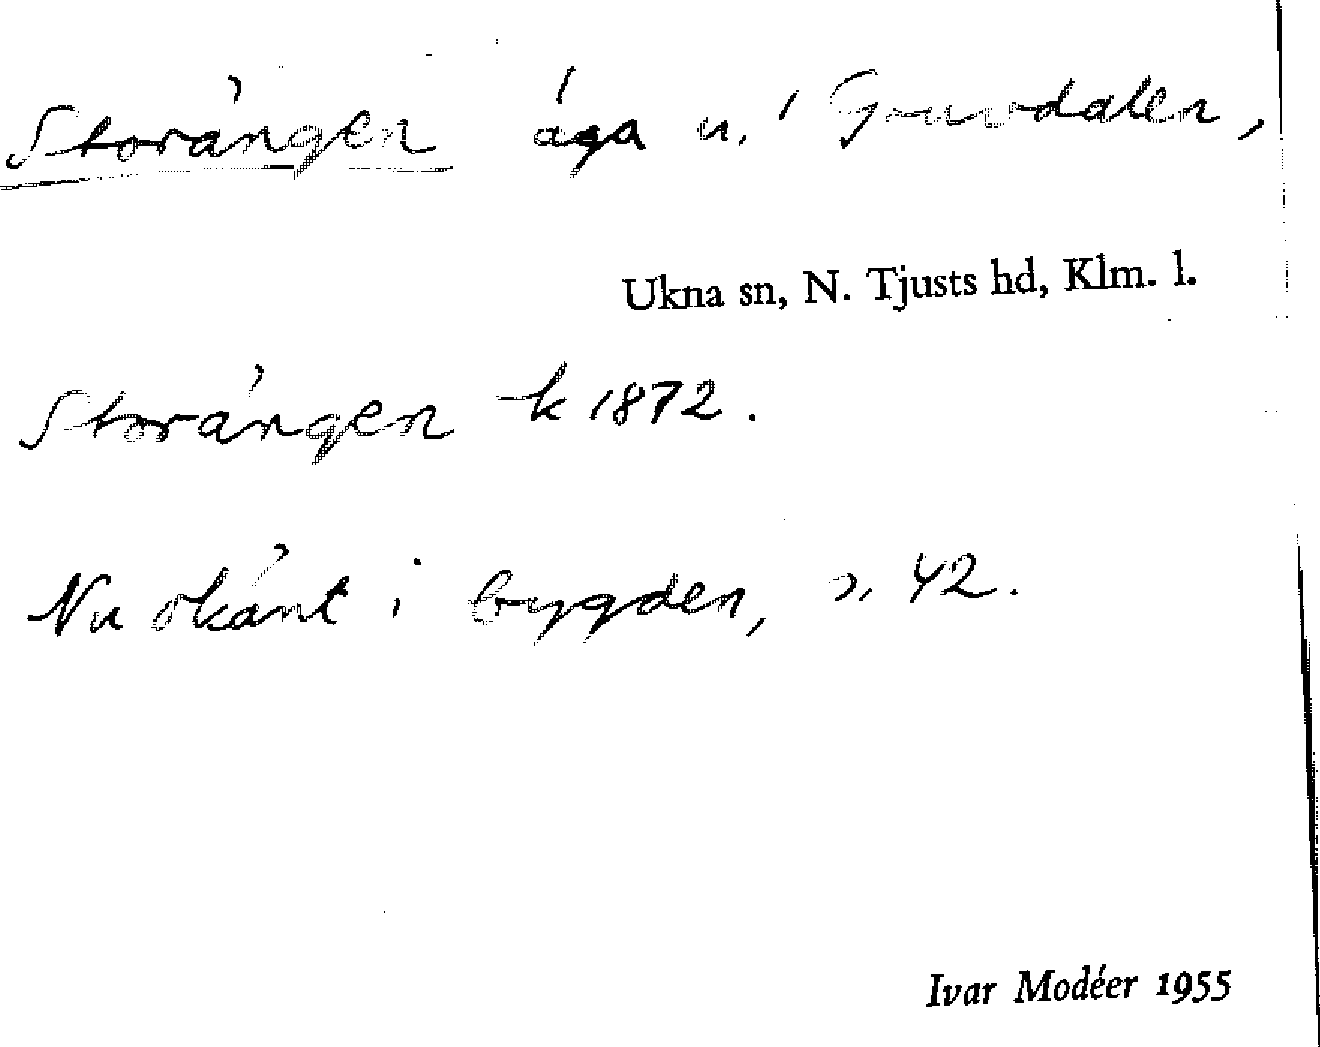 Storängen äga u. Gruvdalen,
Ukna sn, N. Tjusts hd, Klm. l.
Storängen k 1872.
Nu okänt i bygden, s. 42.
Ivar Modéer 1955